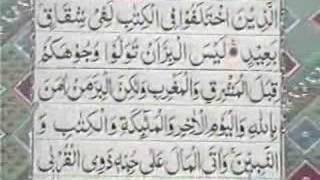 الَّذِيْنَ اخْتَلَفُوْا فِي الْكِتٰبِ لَفِيْ شِقَاقٍۭ
بَعِيْدٍ لَيْسَ الْبِرَّ اَنْ تُوَلُّوْا وُجُوْهَكُمْ
قِبَلَ الْمَشْرِقِ وَالْمَغْرِبِ وَلٰكِنَّ الْبِرَّ مَنْ اٰمَنَ
بِاللّٰهِ وَالْيَوْمِ الْاٰخِرِ وَالْمَلٰٓئِكَةِ وَالْكِتٰبِ وَ
النَّبِيّٖنَ وَاٰتَى الْمَالَ عَلٰى حُبِّهٖ ذَوِي الْقُرْبٰى